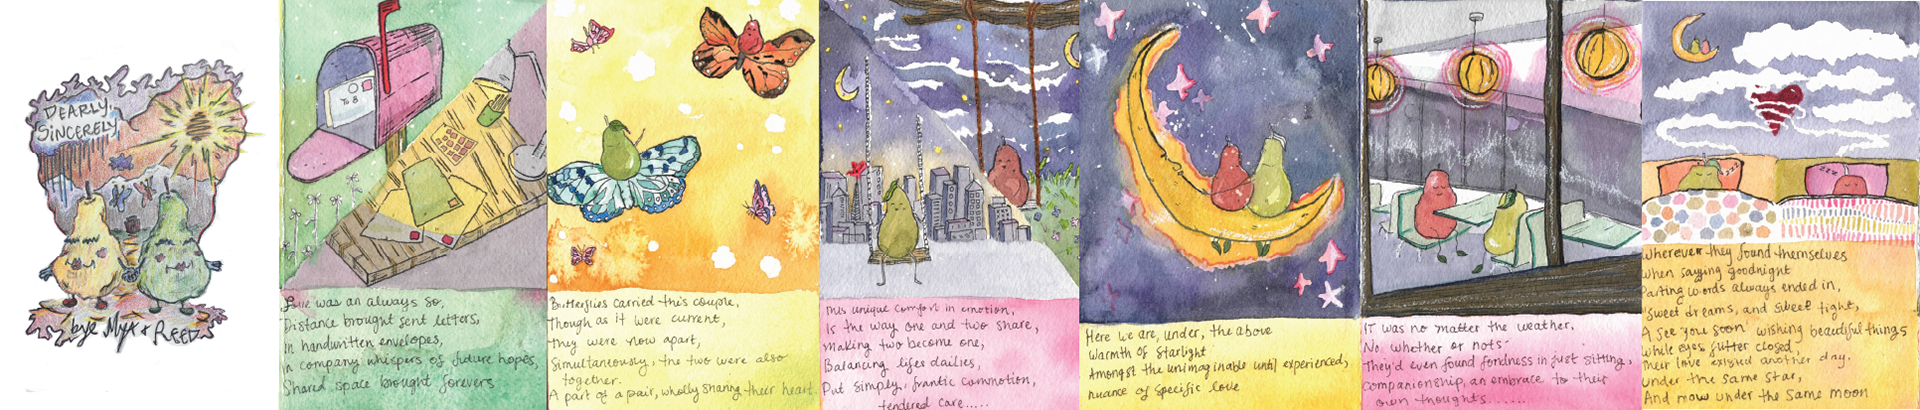 DEARLY,
SINCERELY
bye MYX & REED
To B
Love was an always so,
Distance brought sent letters,
In handwritten envelopes,
in company whispers of future hopes,
Shared space brought forevers
Butterflies carried this couple,
Though as it were current,
they were now apart,
Simultaneously, the two were also
together.
A part of a pair, wholly sharing their heart.
This unique comfort in emotion,
Is the way one and two share,
Making two become one,
Balancing lifes dailies,
Put simply, frantic commotion,
tendered care.....
Here we are, under, the above
Warmth of Starlight
Amongst the unimaginable until experienced,
nuance of specific love
IT was no matter the weather,
No whether or nots-
They'd even found fondness in just sitting,
companionship, an embrace to their
own thoughts.......
zzz
zzz
Wherever they found themselves
When saying goodnight
Parting words always ended in,
'sweet dreams, and sleep tight,
A see you soon' wishing beautiful things
While eyes flutter closed,
Their love existed another day.
Under the same star,
And now under the same moon